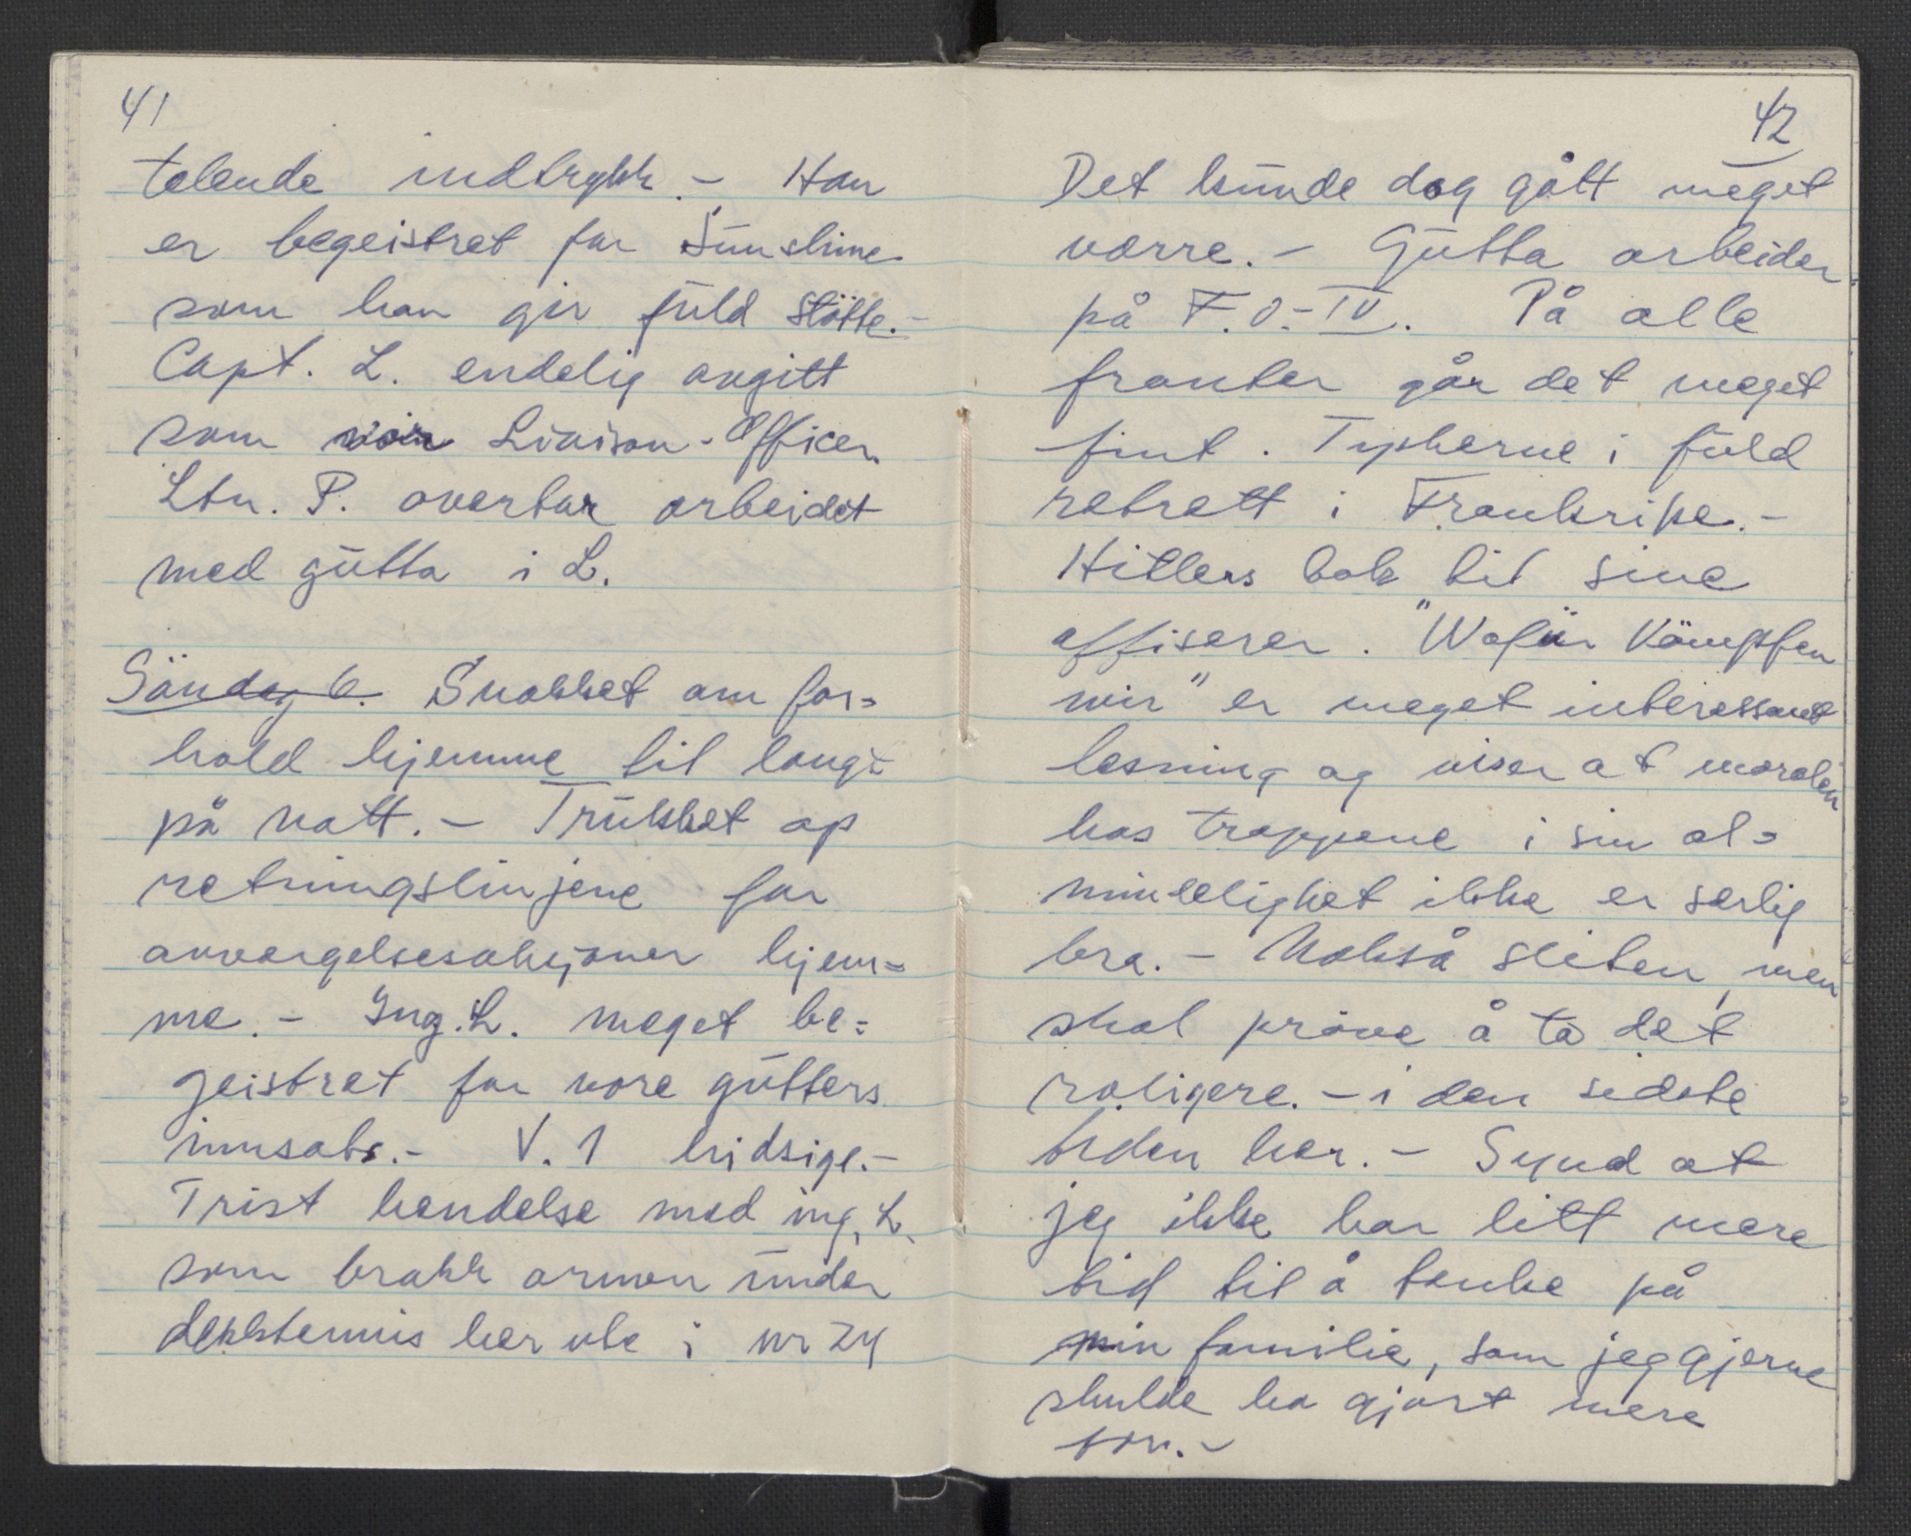 41
talende indtrykk. - Han
er begeistret for Sunshine
som han gir fuld støtte. -
Capt. L. endelig avgitt
som vår Liaison-Officer.
Ltn. P. overtar arbeidet
med gutta i L.
Söndag 6. Snakket om for=
hold hjemme til langt
på natt. - Trukket op
retningslinjene for
avvergelsesaksjoner hjem=
me. - Ing. L. meget be=
geistret for vore gutters
innsats. - V. 1 hidsige. -
Trist hendelse med ing. L.
som brakk armen under
dekktennis her ute i nr 24
42
Det kunde dog gått meget
værre. - Gutta arbeider
på F.O.-IV. På alle
fronter går det meget
fint. Tyskerne i fuld
retrett i Frankrike. -
Hitlers bok til sine
offiserer. "Wofür Kämpfen
wir" er meget interessant
lesning og viser at moralen
hos troppene i sin al=
mindelighet ikke er særlig
bra. - Nokså sliten, men
skal pröve å ta det
roligere. - i den sidste
tiden her. - Synd at
jeg ikke har litt mere
tid til å tenke på
min familie, som jeg gjerne
skulde ha gjort mere
for. -